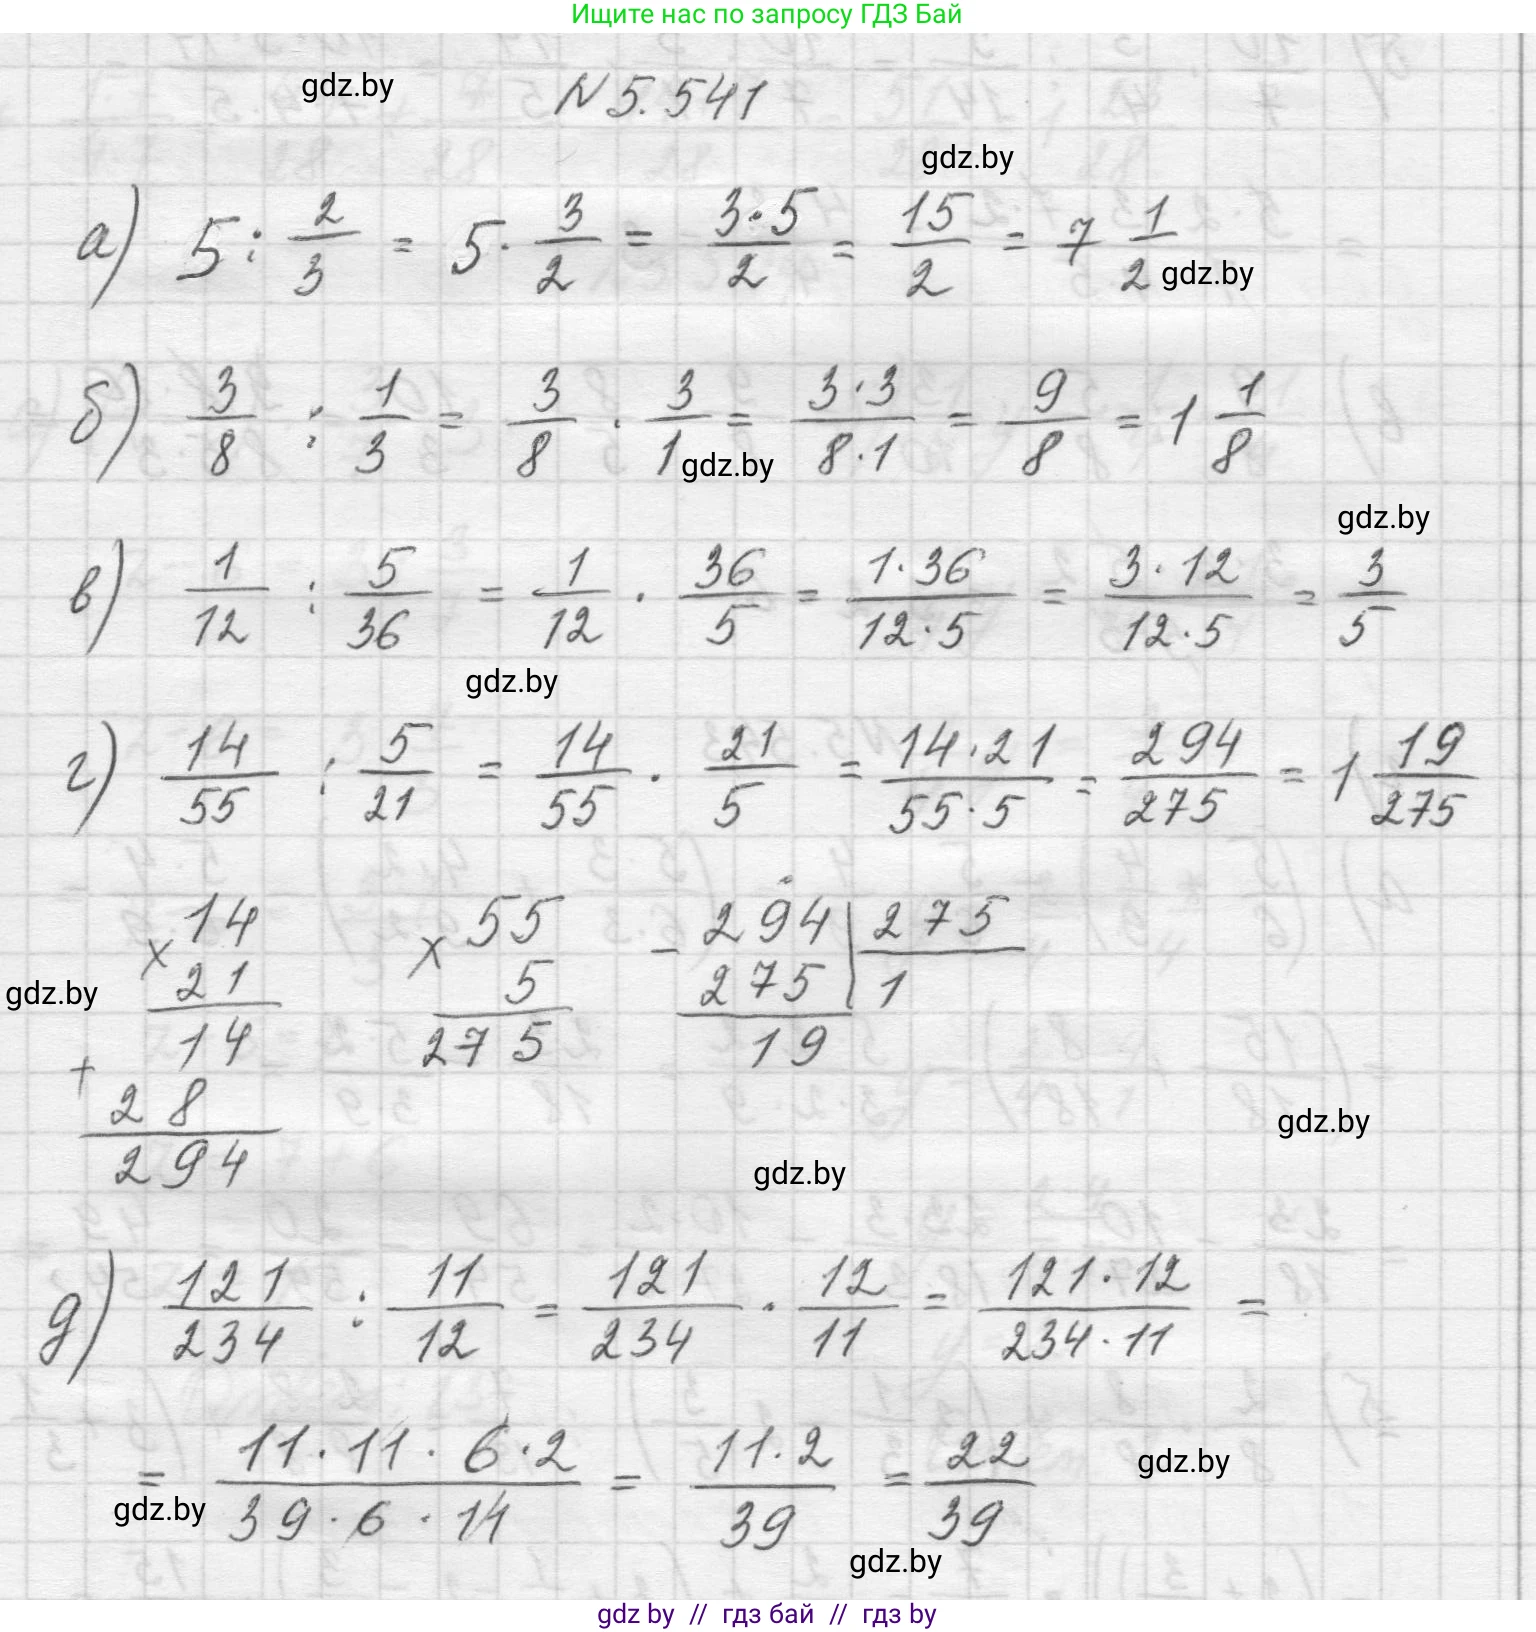 Ищите нас по запросу ГДЗ Бай
gdz.by
N 5.541
gdz.by
а) 5 : 2/3 = 5 · 3/2 = 3·5/2 = 15/2 = 7 1/2
gdz.by
б) 3/8 : 1/3 = 3/8 · 3/1 = 3·3/8·1 = 9/8 = 1 1/8
gdz.by
gdz.by
в) 1/12 : 5/36 = 1/12 · 36/5 = 1·36/12·5 = 3·12/12·5 = 3/5
gdz.by
г) 14/55 : 5/21 = 14/55 · 21/5 = 14·21/55·5 = 294/275 = 1 19/275
14 55 294 275
× × −
21 5 275 1
gdz.by
14 275 19
+
28
294
gdz.by
gdz.by
д) 121/234 : 11/12 = 121/234 · 12/11 = 121·12/234·11 =
= 11·11·6·2/39·6·11 = 11·2/39 = 22/39
gdz.by
gdz.by
gdz.by
gdz by // гдз бай // гдз by